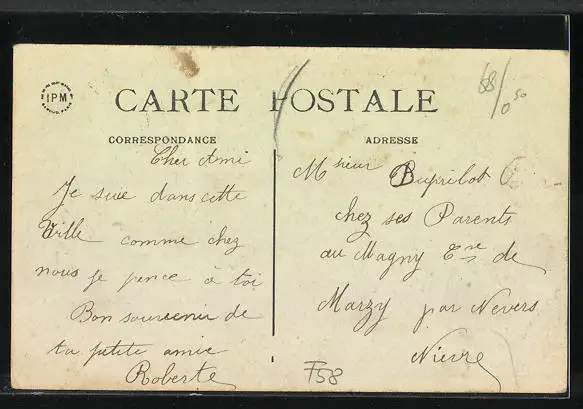 IPM
CARTE POSTALE
88/0 50
CORRESPONDANCE
Cher Ami
Je suie dans cette
Ville comme chez
nous je pence à toi
Bon souvenir de
ta petite amie
Roberte
ADRESSE
Msieur
chez ses Parents
au Magny Cne de
Marzy par Nevers
Nievre
F58